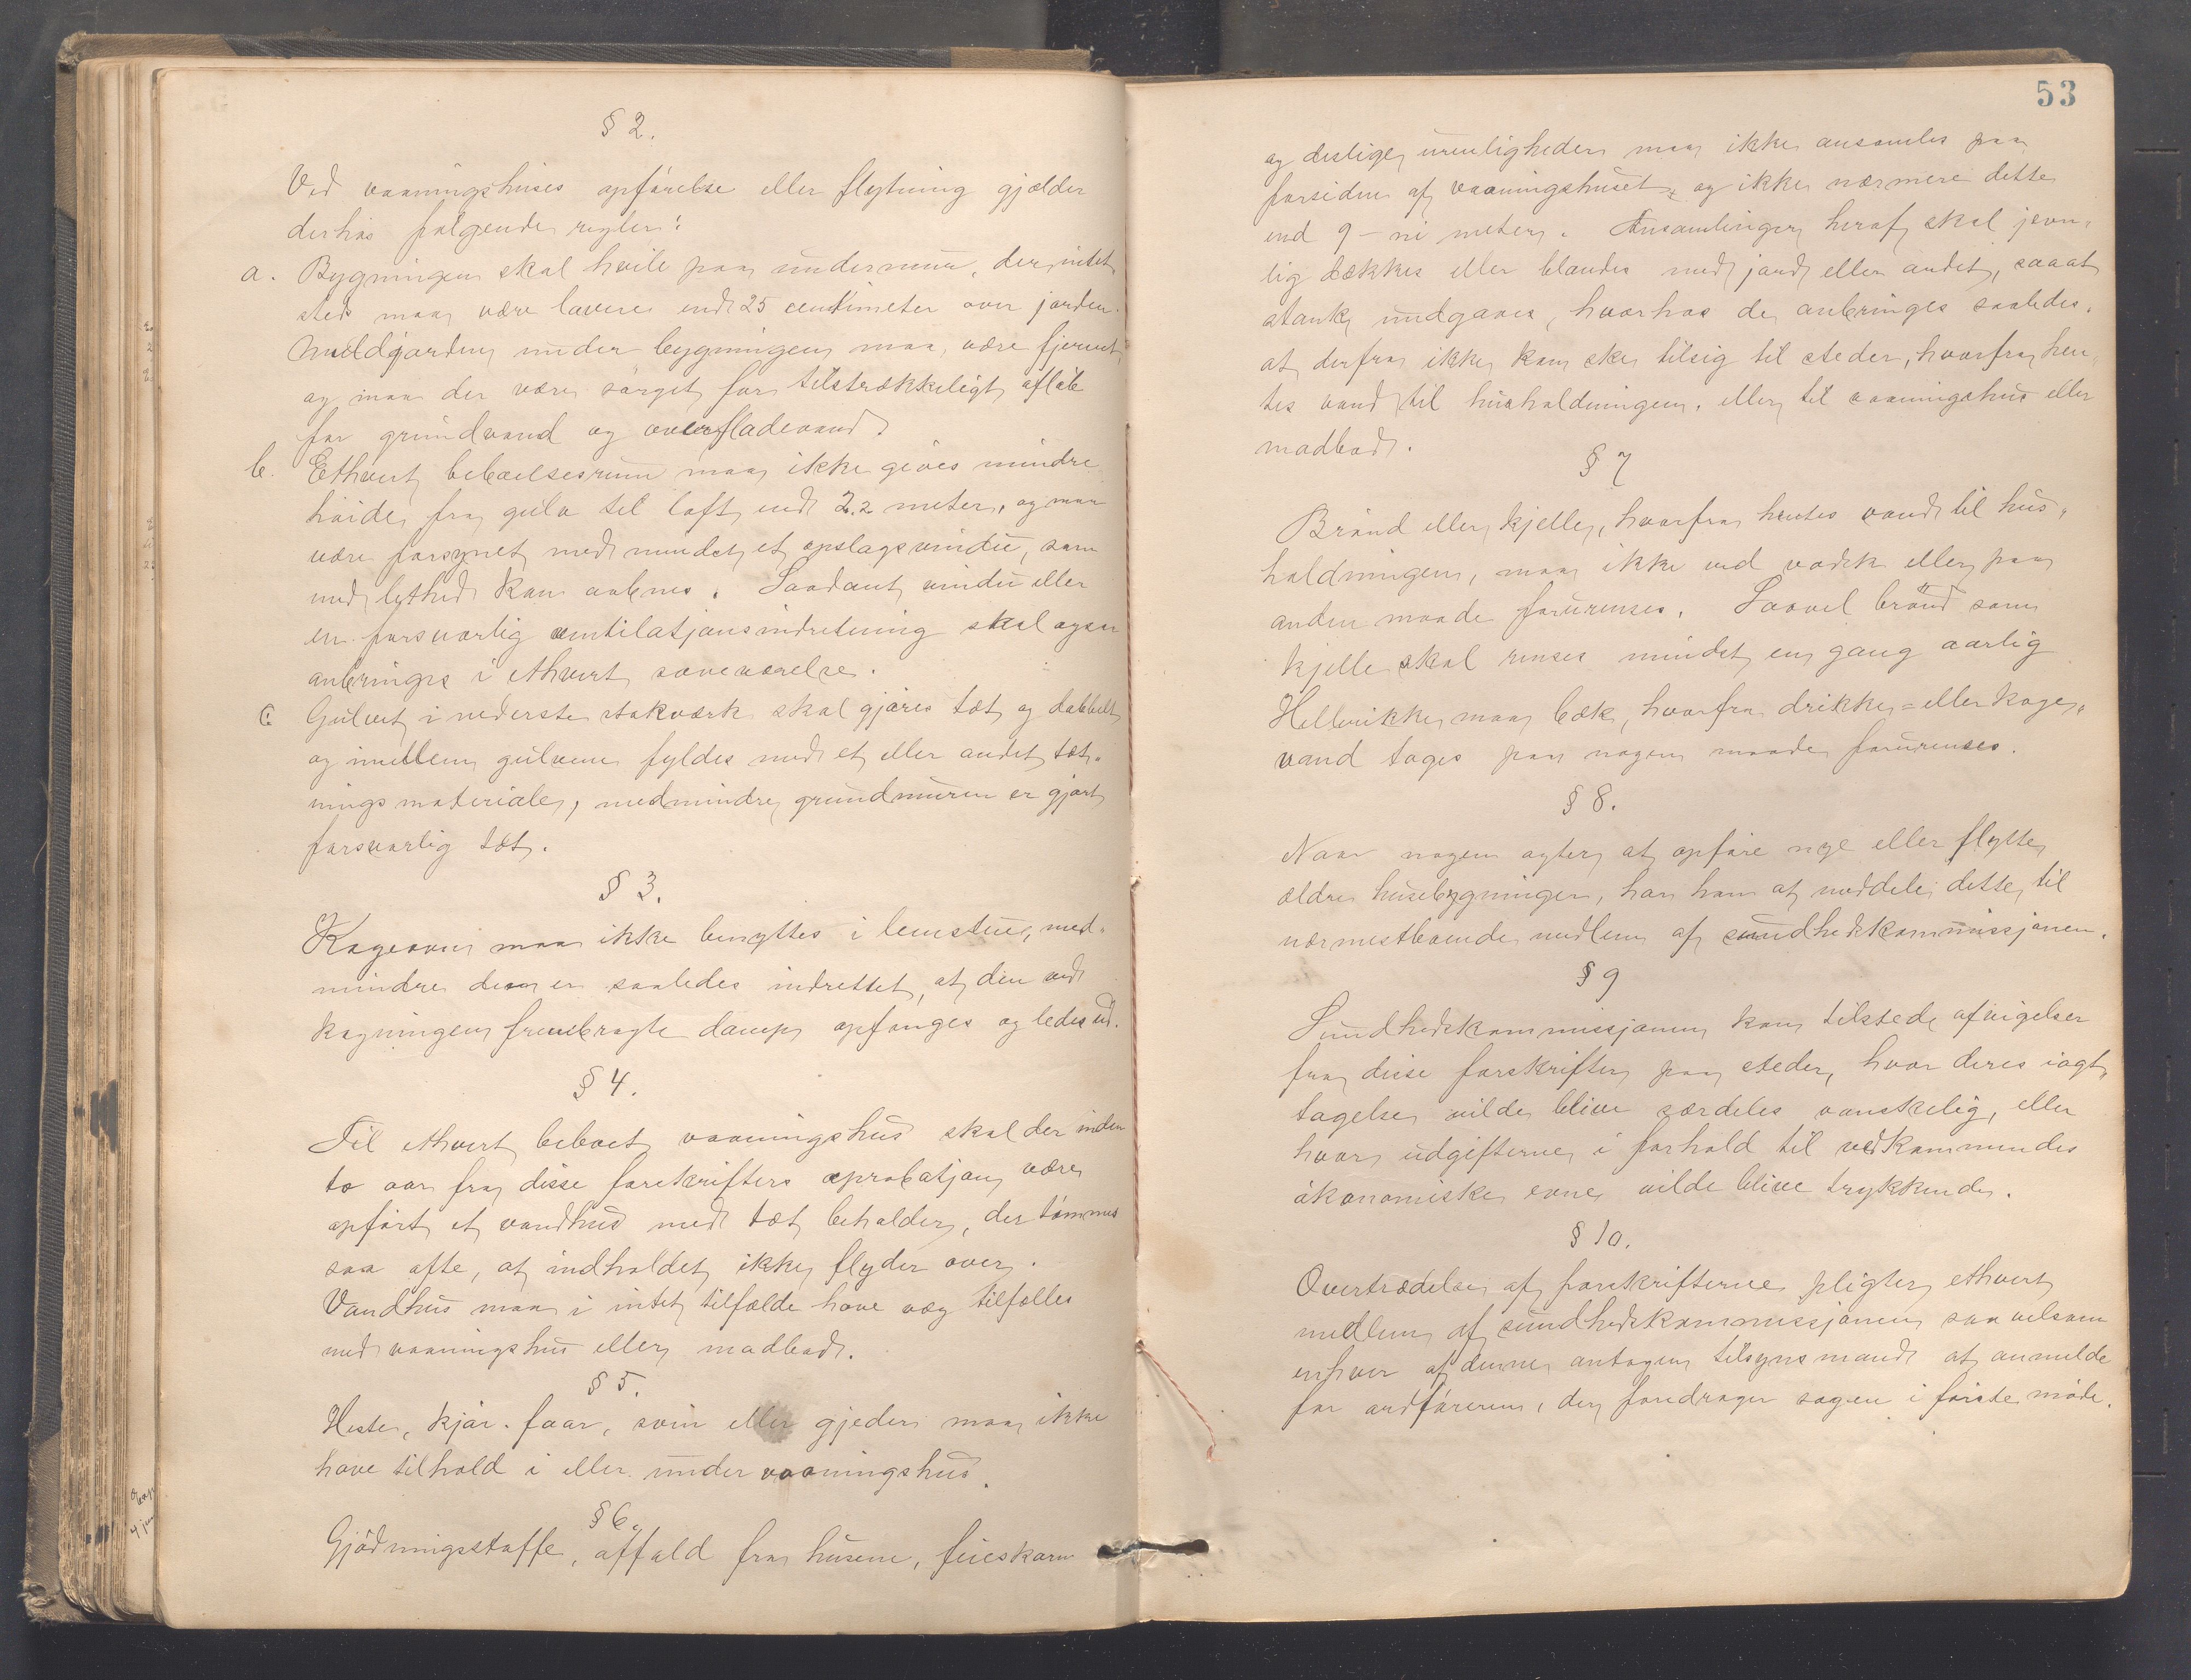 § 2.
Ved vaaningshuses opførelse eller flytning gjælder
derhos følgende regler:
a. Bygningen skal hvile paa undermur, der intet
sted maa være lavere end 25 centimeter over jorden.
Muldjorden under bygningen maa være fjernet,
og maa der være sørget for tilstrækkeligt afløb
for grundvand og overfladevand.
b. Ethvert beboelsesrum maa ikke gives mindre
høide fra gulv til loft end 2.2 meter, og maa
være forsynet med mindst et opslagsvindu, som
med lethed kan aabnes. Saadant vindu eller
en forsvarlig ventilatjonsindretning skal ogsaa
anbringes i ethvert soveværelse.
c. Gulvet i nederste stokværk skal gjøres tæt og dobbelt
og imellem gulvene fyldes med et eller andet tæt-
ningsmateriale, medmindre grundmuren er gjort
forsvarlig tæt.
§ 3.
Kogeovn maa ikke benyttes i lemstue, med-
mindre den er saaledes indrettet, at den ved
kogningen frembragte damp opfanges og ledes ud.
§ 4.
Til ethvert beboet vaaningshus skal der inden
to aar fra disse forskrifters aprobatjon være
opført et vandhus med tæt beholder, der tømmes
saa ofte, at indholdet ikke flyder over.
Vandhus maa i intet tilfælde have væg tilfælles
med vaaningshus eller madbod.
§ 5.
Heste, kjør, faar, svin eller gjeder maa ikke
have tilhold i eller under vaaningshus.
§ 6.
Gjødningsstoffe, affald fra husene, feieskarn
53
og deslige urenligheder maa ikke ansamles paa
forsiden af vaaningshuset og ikke nærmere dette
end 9 - ni meter. Ansamlinger heraf skal jevn-
lig dækkes eller blandes med jord eller andet, saaat
stank undgaaes, hvorhos de anbringes saaledes,
at derfra ikke kan ske tilsig til steder, hvorfra hen-
tes vand til husholdningen, eller til vaaningshus eller
madbod.
§ 7
Brønd eller kjelle, hvorfra hentes vand til hus-
holdningen, maa ikke ved vadsk eller paa
anden maade forurenses. Saavel brønd som
kjelle skal renses mindst en gang aarlig
Hellerikke maa bæk, hvorfra drikke- eller koge-
vand tages paa nogen maade forurenses.
§ 8.
Naar nogen agter at opføre nye eller flytte
ældre husebygninger, har han at meddele dette til
nærmestboende medlem af sundhedskommissjonen.
§ 9
Sundhedskommissjonen kan tilstede afvigelser
fra disse forskrifter paa steder, hvor deres iagt-
tagelse vilde blive særdeles vanskelig, eller
hvor udgifterne i forhold til vedkommendes
økonomiske evne vilde blive trykkende.
§ 10.
Overtrædelse af forskrifterne pligter ethvert
medlem af sundhedskommissjonen saavelsom
enhver af denne antagen tilsynsmand at anmelde
for ordføreren, der foredrager sagen i første møde.